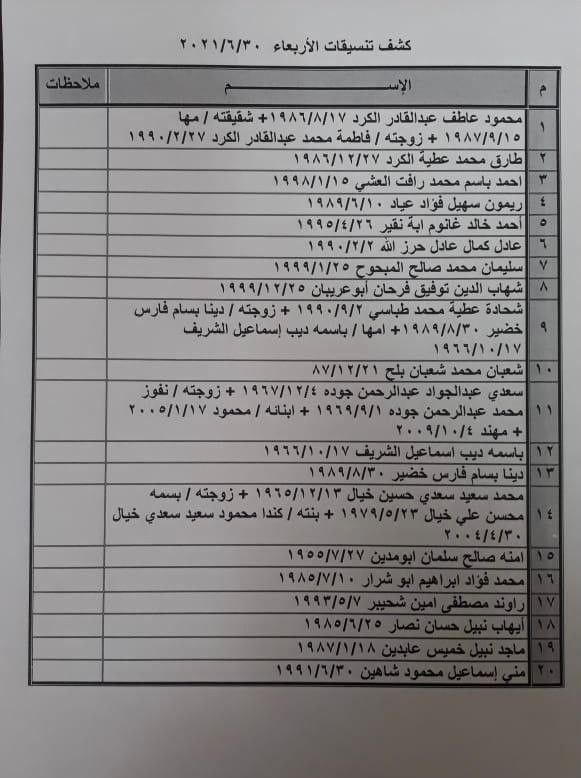 كشف تنسيقات الأربعاء ٢٠٢١/٦/٣٠
م الإســـم ملاحظات
١ محمود عاطف عبدالقادر الكرد ١٩٨٦/٨/١٧+ شقيقته / مها
١٩٨٧/٩/١٥ + زوجته / فاطمة محمد عبدالقادر الكرد ١٩٩٠/٢/٢٧
٢ طارق محمد عطية الكرد ١٩٨٦/١٢/٢٧
٣ احمد باسم محمد رافت العشي ١٩٩٨/١/١٥
٤ ريمون سهيل فؤاد عياد ١٩٨٩/٦/١٠
٥ أحمد خالد غانوم ابة نقير ١٩٩٥/٤/٢٦
٦ عادل كمال عادل حرز الله ١٩٩٠/٢/٢
٧ سليمان محمد صالح المبحوح ١٩٩٩/١/٢٥
٨ شهاب الدين توفيق فرحان أبوعريبان ١٩٩٩/١٢/٢٥
٩ شحادة عطية محمد طباسي ١٩٩٠/٩/٢ + زوجته / دينا بسام فارس
خضير ١٩٨٩/٨/٣٠+ امها / باسمه ديب إسماعيل الشريف
١٩٦٦/١٠/١٧
١٠ شعبان محمد شعبان بلح ٨٧/١٢/٢١
١١ سعدي عبدالجواد عبدالرحمن جوده ١٩٦٧/١٢/٤ + زوجته / نفوز
محمد عبدالرحمن جوده ١٩٦٩/٩/١ + ابنائه / محمود ٢٠٠٥/١/١٧
+ مهند ٢٠٠٩/١٠/٤
١٢ باسمه ديب اسماعيل الشريف ١٩٦٦/١٠/١٧
١٣ دينا بسام فارس خضير ١٩٨٩/٨/٣٠
١٤ محمد سعيد سعدي حسين خيال ١٩٦٥/١٢/١٣ + زوجته / بسمه
محسن علي خيال ١٩٧٩/٥/٢٣ + بنته / كندا محمود سعيد سعدي خيال
٢٠٠٤/٤/٣٠
١٥ امنه صالح سلمان ابومدين ١٩٥٥/٧/٢٧
١٦ محمد فؤاد ابراهيم ابو شرار ١٩٨٥/٧/١٠
١٧ راوند مصطفى امين شحيبر ١٩٩٣/٥/٧
١٨ أيهاب نبيل حسان نصار ١٩٨٥/٦/٢٥
١٩ ماجد نبيل خميس عابدين ١٩٨٧/١/١٨
٢٠ مني إسماعيل محمود شاهين ١٩٩١/٦/٣٠